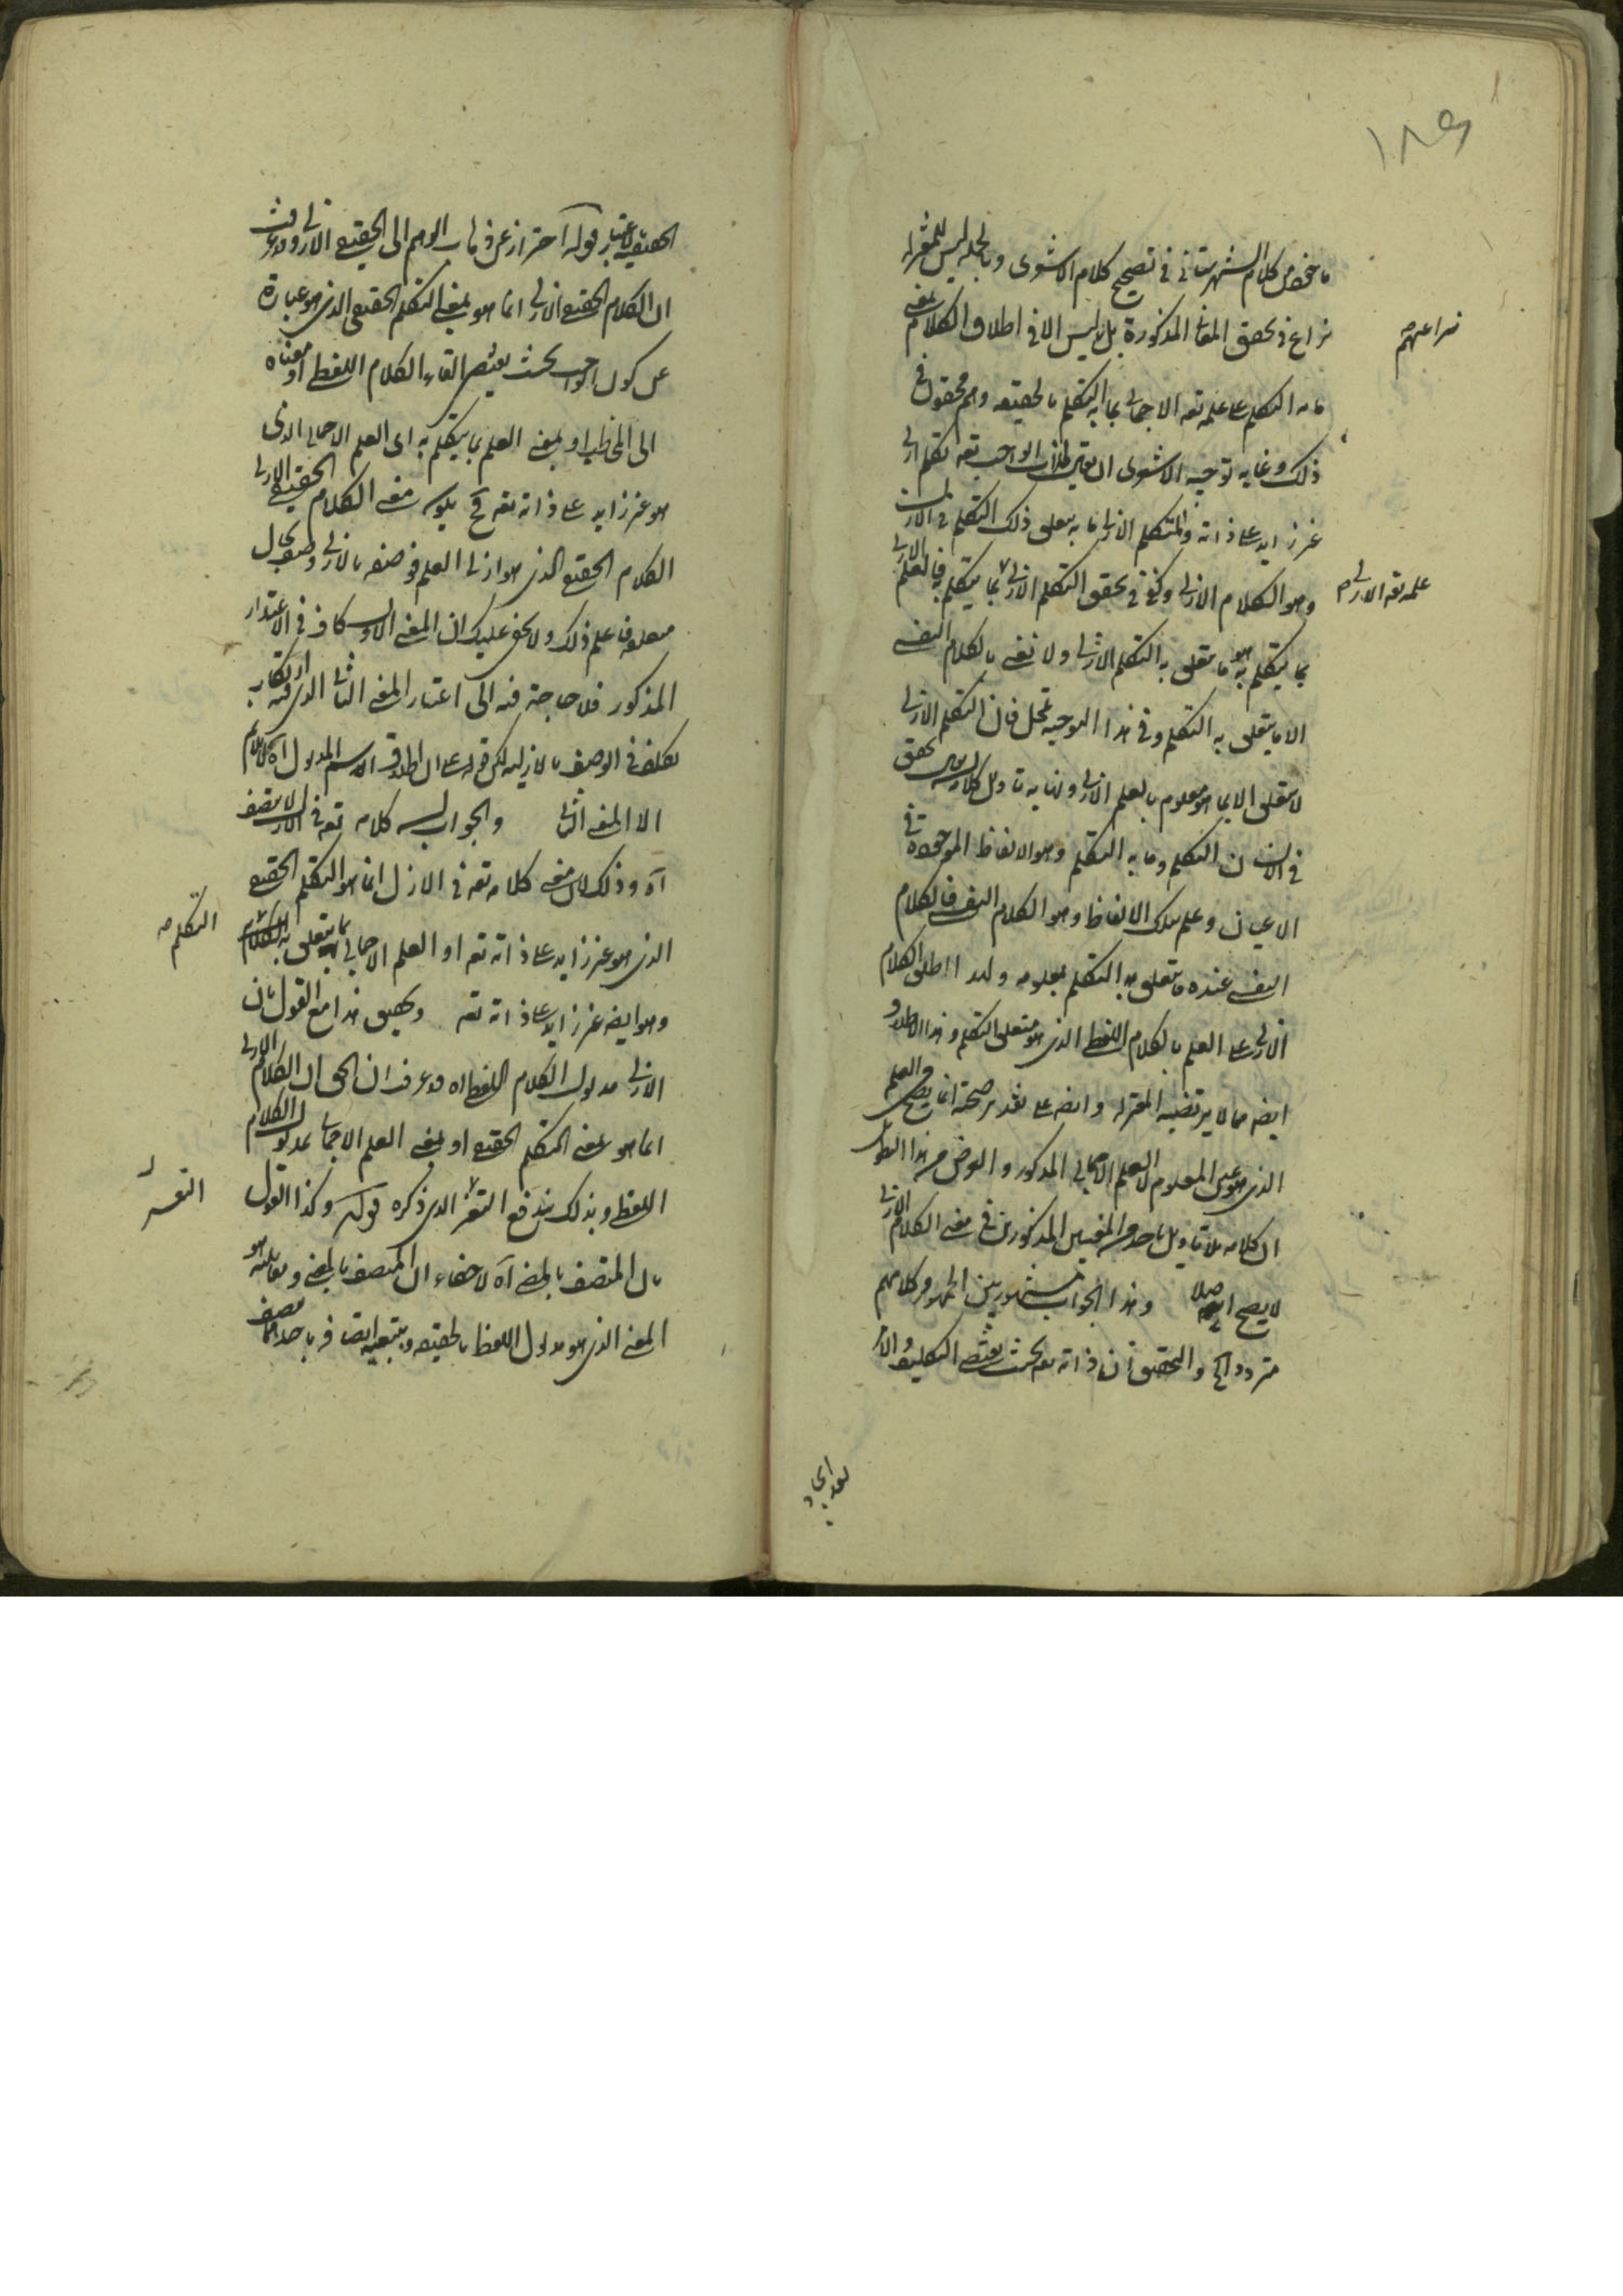 ١٨٩
ما خص من كلام الشهرستانى فى تصحيح كلام الاشعرى وبالجملة ليس للمعتزلة
نزاع فى تحقق المعانى المذكورة بل ليس الا فى اطلاق الكلام بمعنى
نزاعهم
ما به التكلم على علمه تعه الاجمالى بما به التكلم بالحقيقة وهم محقون فى
ذلك وغاية توجيه الاشعرى ان يقال ان للواجب تعه تكلم ازلى
غير زايد على ذاته والمتكلم الازلى ما به يتعلق ذلك التكلم فى الازل
وهو الكلام الازلى وكفى فى تحقق التكلم الازلى بما يتكلم به العلم الازلى
علمه تعه الازلى صح
بما يتكلم به هو ما يتعلق به التكلم الازلى ولا نعنى بالكلام النفسى
الا ما يتعلق به التكلم وفى هذا التوجيه تمحل فان التكلم الازلى
لا يتعلق الا بما هو معلوم بالعلم الازلى وغاية تاويل كلامه تحقق
فى الانسان التكلم وما به التكلم وهو الالفاظ الموجودة فى
الاعيان وعلم تلك الالفاظ وهو الكلام النفسى فالكلام
النفسى عنده ما يتعلق به التكلم بعلومه ولهذا اطلق الكلام
الازلى على العلم بالكلام اللفظى الذى هو متعلق التكلم وهذا الاطلاق
ايضا مما لا يرتضيه المعتزلة وايضا على تقدير صحته انما يصح فى العلم
الذى هو عين المعلوم لا العلم الاجمالى المذكور والغرض من هذا التطويل
ان كلامه بلا تاويل باحد من المعنيين المذكورين فى معنى الكلام الازلى
لا يصح اصلا وهذا الجواب مشهور بين الجمهور وكلامهم
متردد الخ والتحقيق ان ذاته تعه بحيث يقتضى التكليف والامر
الحقيقة لاعتبار قوله احتراز عن ذهاب الوهم الى الحقيقى الازلى وقد عرفت
ان الكلام الحقيقى الازلى انما هو بمعنى التكلم الحقيقى الذى هو عبارة
عن كون الواجب بحيث يقتضى القاء الكلام اللفظى او معناه
الى المخاطب او بمعنى العلم بما يتكلم به اى العلم الاجمالى الذى
هو غير زايد على ذاته تعه فح يكون معنى الكلام الحقيقى الازلى
الكلام الحقيقى الذى هو ازلى العلم فوصفه بالازلى وصف بحال
متعلقه فاعلم ذلك ولا يخفى عليك ان المعنى الاول كاف فى الاعتذار
المذكور فلا حاجة فيه الى اعتبار المعنى الثانى الذى فيه ارتكاب
تكلف فى الوصف بالازلية لكن قوله على ان اطلاق الاسم المدلول اه لا يلايم
الا المعنى الثانى والجواب ليس كلامه تعه فى الازل لا يتصف
آه وذلك لان معنى كلامه تعه فى الازل انما هو التكلم الحقيقى
الذى هو غير زايد على ذاته تعه او العلم الاجمالى بما يتعلق به
التكلم صح
وهو ايضا غير زايد على ذاته تعه وتحقيق هذا مع القول بان
الازلى مدلول الكلام اللفظى اه قد عرفت ان الحق ان الكلام الازلى
انما هو بمعنى المتكلم الحقيقى او بمعنى العلم الاجمالى بمدلول الكلام
اللفظى وبذلك يندفع التعسر الذى ذكره قوله وكذا القول
التعسر
بان المتصف بالمضى آه لا خفاء ان المتصف بالمضى ومقابليه هو
المعنى الذى هو مدلول اللفظ بالحقيقة وبتبعية اتصافه باحدها يتصف